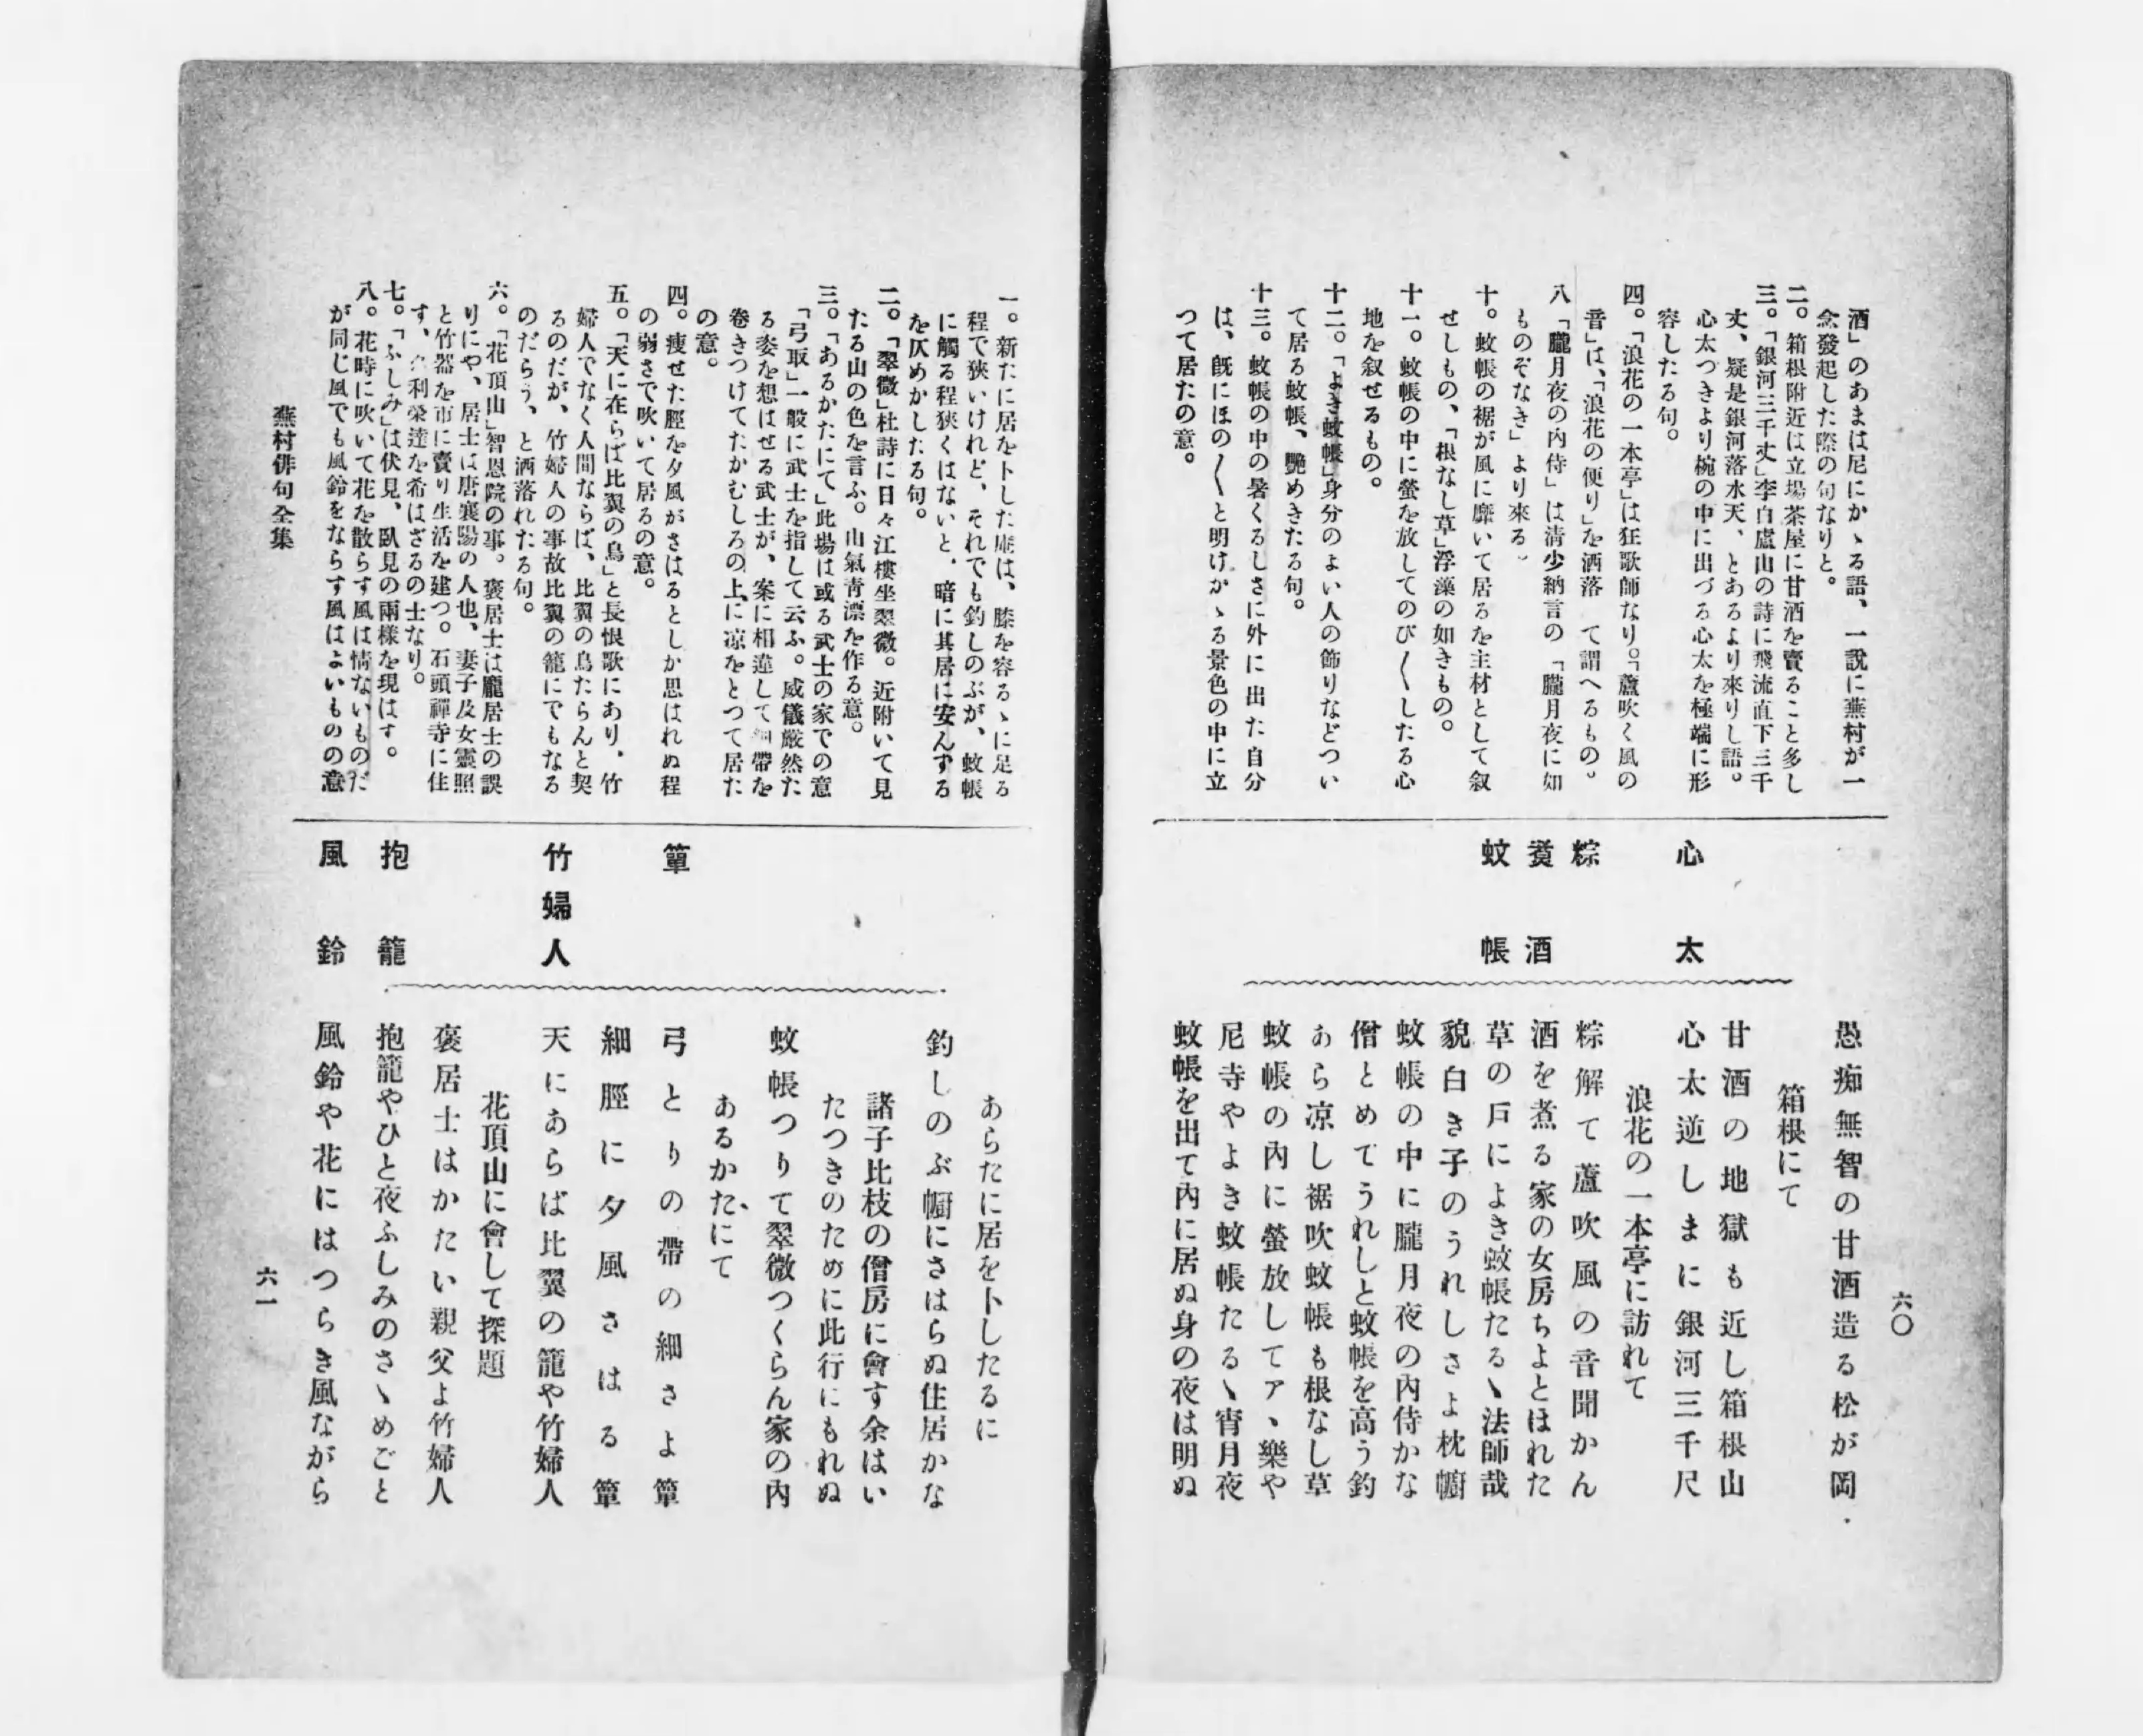 六〇
酒」のあまは尼にかゝる語、一說に蕪村が一
念發起した際の句なりと。
二。箱根附近は立場茶屋に甘酒を賣ること多し
三。「銀河三千丈」李白盧山の詩に飛流直下三千
丈、疑是銀河落水天、とあるより來りし語。
心太つきより椀の中に出づる心太を極端に形
容したる句。
四。「浪花の一本亭」は狂歌師なり。「蘆吹く風の
音」は、「浪花の便り」を洒落 て謂へるもの。
八「朧月夜の內侍」は淸少納言の「朧月夜に如
ものぞなき」より來る。
十。蚊帳の裾が風に靡いて居るを主材として叙
せしもの、「根なし草」浮藻の如きもの。
十一。蚊帳の中に螢を放してのび〱したる心
地を叙せるもの。
十二。「よき蚊帳」身分のよい人の飾りなどつい
て居る蚊帳、艷めきたる句。
十三。蚊帳の中の暑くるしさに外に出た自分
は、旣にほの〱と明けかゝる景色の中に立
つて居たの意。
心太
粽
煑酒
蚊帳
愚痴無智の甘酒造る松が岡
箱根にて
甘酒の地獄も近し箱根山
心太逆しまに銀河三千尺
浪花の一本亭に訪れて
粽解て蘆吹風の音聞かん
酒を煮る家の女房ちよとほれた
草の戸によき蚊帳たるゝ法師哉
貌白き子のうれしさよ枕幮
蚊帳の中に朧月夜の內侍かな
僧とめてうれしと蚊帳を高う釣
あら凉し裾吹蚊帳も根なし草
蚊帳の內に螢放してアヽ樂や
尼寺やよき蚊帳たるゝ宵月夜
蚊帳を出て內に居ぬ身の夜は明ぬ
一。新たに居を卜した庵は、膝を容るゝに足る
程で狹いけれど、それでも釣しのぶが、蚊帳
に觸る程狹くはないと、暗に其居に安んずる
を仄めかしたる句。
二。「翠微」杜詩に日々江樓坐翠微。近附いて見
たる山の色を言ふ。山氣靑漂を作る意。
三。「あるかたにて」此場は或る武士の家での意
「弓取」一般に武士を指して云ふ。威儀嚴然た
る姿を想はせる武士が、案に相違して細帶を
卷きつけてたかむしろの上に凉をとつて居た
の意。
四。瘦せた脛を夕風がさはるとしか思はれぬ程
の弱さで吹いて居るの意。
五。「天に在らば比翼の鳥」と長恨歌にあり、竹
婦人でなく人間ならば、比翼の鳥たらんと契
るのだが、竹婦人の事故比翼の籠にでもなる
のだらう、と洒落れたる句。
六。「花頂山」智恩院の事。褒居士は龐居士の誤
りにや、居士は唐襄陽の人也、妻子及女靈照
と竹器を市に賣り生活を建つ。石頭禪寺に住
す、名利榮達を希はざるの士なり。
七。「ふしみ」は伏見、臥見の兩樣を現はす。
八。花時に吹いて花を散らす風は情ないものだ
が同じ風でも風鈴をならす風はよいものの意
簟
竹婦人
抱籠
風鈴
あらたに居を卜したるに
釣しのぶ幮にさはらぬ住居かな
諸子比枝の僧房に會す余はい
たつきのために此行にもれぬ
蚊帳つりて翠微つくらん家の內
あるかたにて
弓とりの帶の細さよ簟
細脛に夕風さはる簟
天にあらば比翼の籠や竹婦人
花頂山に會して探題
褒居士はかたい親父よ竹婦人
抱籠やひと夜ふしみのさゝめごと
風鈴や花にはつらき風ながら
蕪村俳句全集
六一